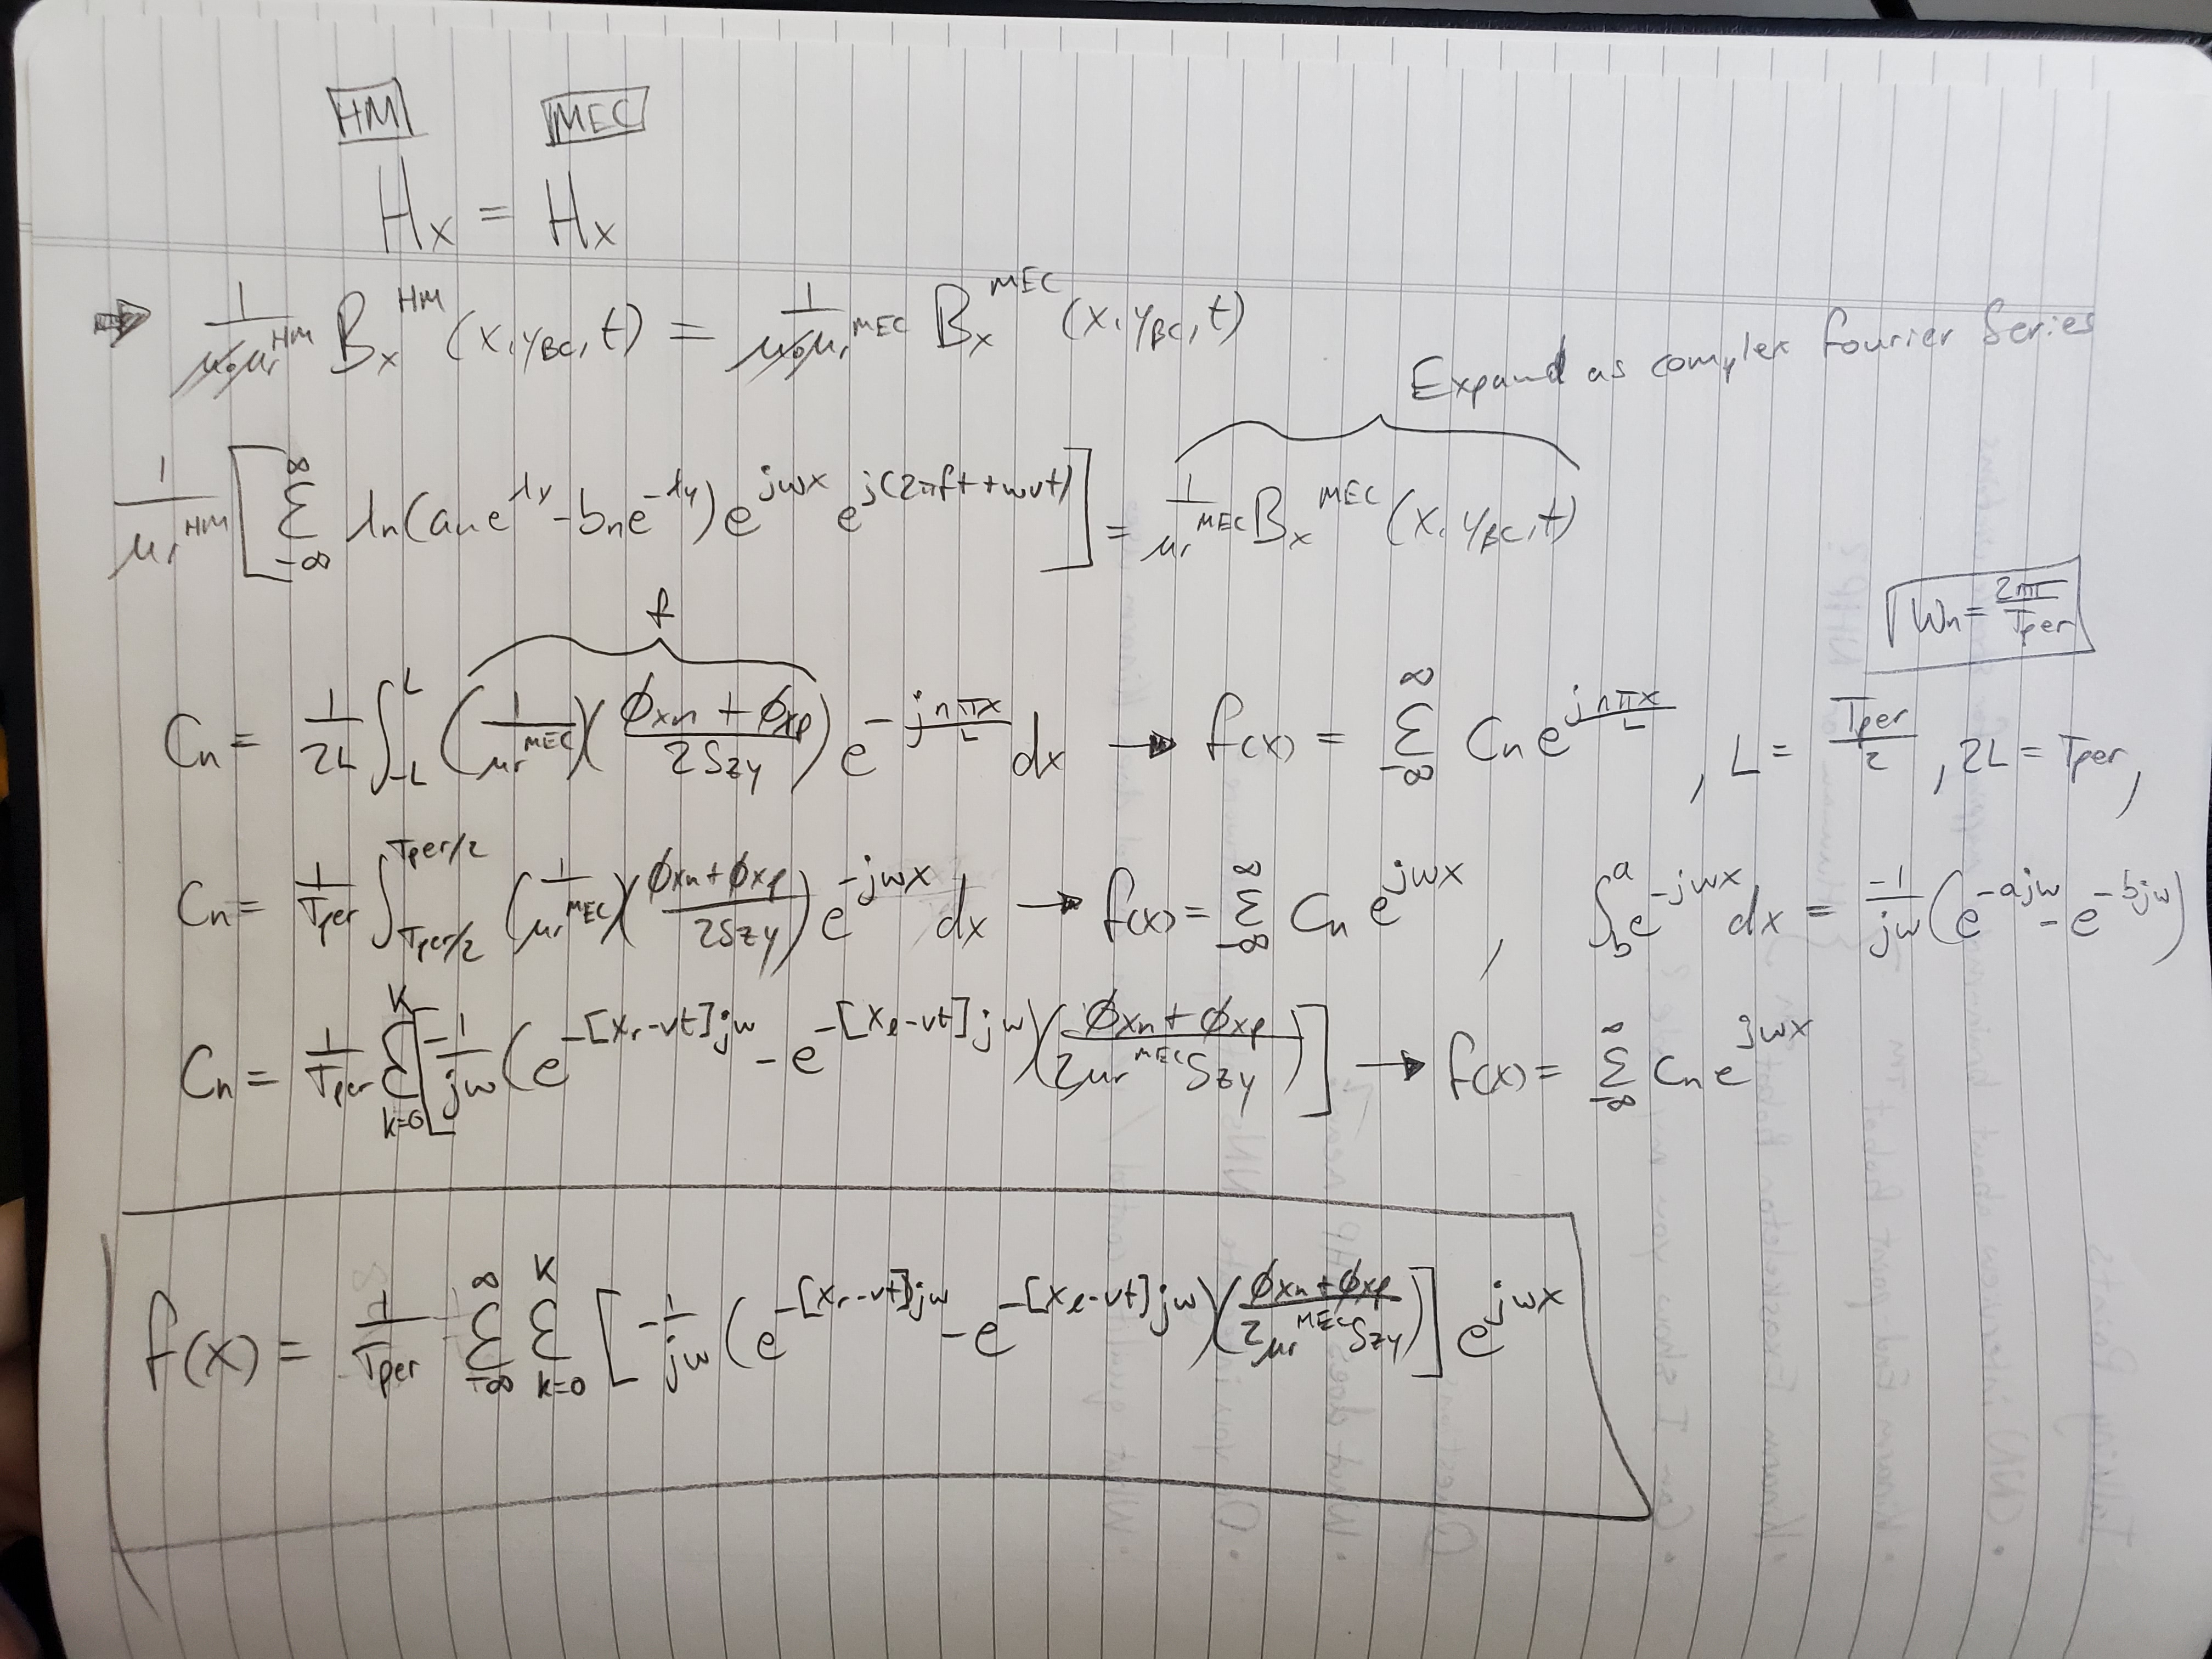 HM MEC
Hx = Hx
→ 1/(μ₀μr^HM) Bx^HM (x, y_BC, t) = 1/(μ₀μr^MEC) Bx^MEC (x, y_BC, t)
Expand as complex fourier Series
1/μr^HM [ Σ_{-∞}^{∞} λn(an e^{λy} - bn e^{-λy}) e^{jwx} e^{j(2πft + wvt)} ] = 1/μr^MEC Bx^MEC (x, y_BC, t)
Wn = 2π/Tper
f
Cn = 1/2L ∫_{-L}^{L} (1/μr^MEC)((ϕxn + ϕxp)/2Szy) e^{-jnπx/L} dx → f(x) = Σ_{-∞}^{∞} Cn e^{jnπx/L}, L = Tper/2, 2L = Tper,
Cn = 1/Tper ∫_{Tper/2}^{Tper/2} (1/μr^MEC)((ϕxn + ϕxp)/2Szy) e^{-jwx} dx → f(x) = Σ_{-∞}^{∞} Cn e^{jwx}, ∫_b^a e^{-jwx} dx = -1/jw (e^{-ajw} - e^{-bjw})
Cn = 1/Tper Σ_{k=0}^{K} [ -1/jw (e^{-[xr-vt]jw} - e^{-[xl-vt]jw})((ϕxn + ϕxp)/2μr^MEC Szy) ] → f(x) = Σ_{-∞}^{∞} Cn e^{jwx}
f(x) = 1/Tper Σ_{-∞}^{∞} Σ_{k=0}^{K} [ -1/jw (e^{-[xr-vt]jw} - e^{-[xl-vt]jw})((ϕxn + ϕxp)/2μr^MEC Szy) ] e^{jwx}